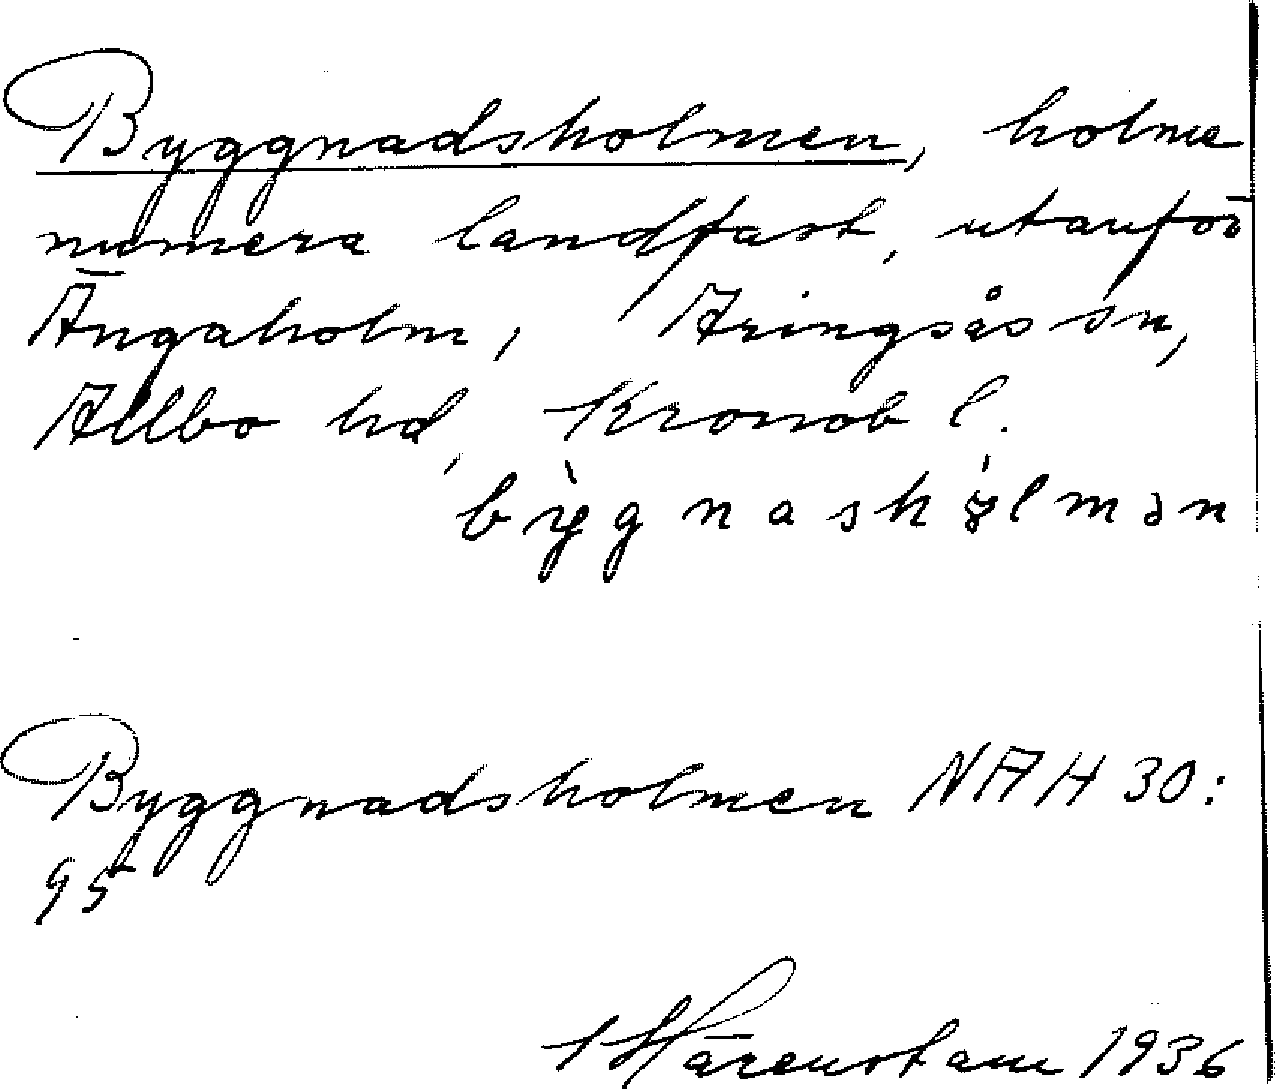 Byggnadsholmen, holme
numera landfast, utanför
Ängaholm, Aringsås sn,
Allbo hd, Kronob l.
bỳgnashȯ́lmən
Byggnadsholmen NAH 30:
95
Härenstam 1936